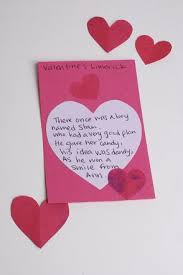 Valentine's Limerick
There once was a boy
named Stan
who had a very good plan
He gave her candy,
his idea was dandy,
As he won a
smile from
Ann.